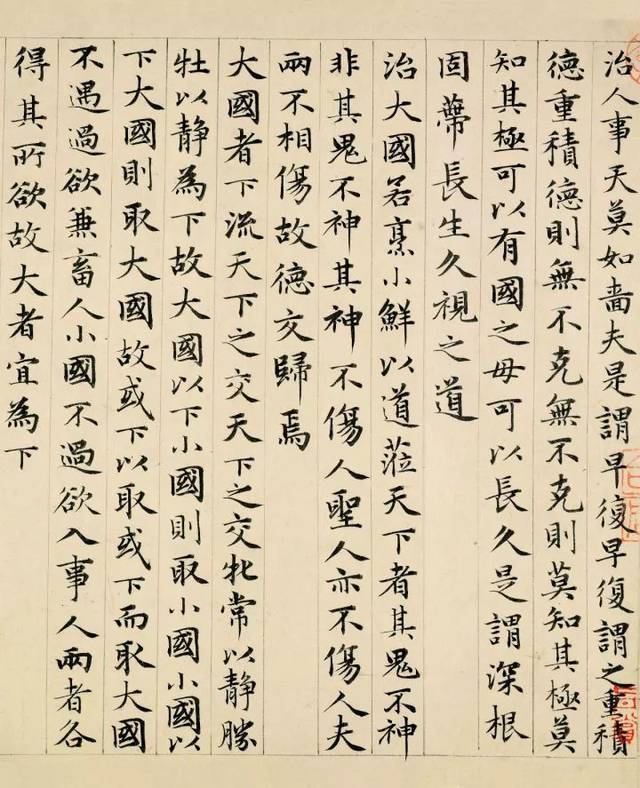 治人事天莫如嗇夫是謂早復早復謂之重積
德重積德則無不克無不克則莫知其極莫
知其極可以有國之母可以長久是謂深根
固蔕長生久視之道
治大國若烹小鮮以道蒞天下者其鬼不神
非其鬼不神其神不傷人聖人亦不傷人夫
兩不相傷故德交歸焉
大國者下流天下之交天下之交牝常以靜勝
牡以靜為下故大國以下小國則取小國小國以
下大國則取大國故或下以取或下而取大國
不遇過欲兼畜人小國不過欲入事人兩者各
得其所欲故大者宜為下